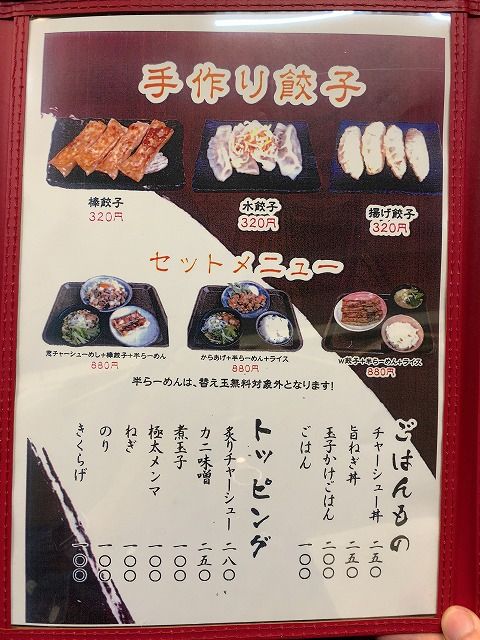 手作り餃子
棒餃子
320円
水餃子
320円
揚げ餃子
320円
セットメニュー
炙チャーシューめし+棒餃子+半らーめん
880円
からあげ+半らーめん+ライス
880円
W餃子+半らーめん+ライス
880円
半らーめんは、替え玉無料対象外となります!
ごはんもの
チャーシュー丼 二五〇
旨ねぎ丼 二五〇
玉子かけごはん 二〇〇
ごはん 一〇〇
トッピング
炙りチャーシュー 二八〇
カニ味噌 二五〇
煮玉子 一〇〇
極太メンマ 一〇〇
ねぎ 一〇〇
のり 一〇〇
きくらげ 一〇〇